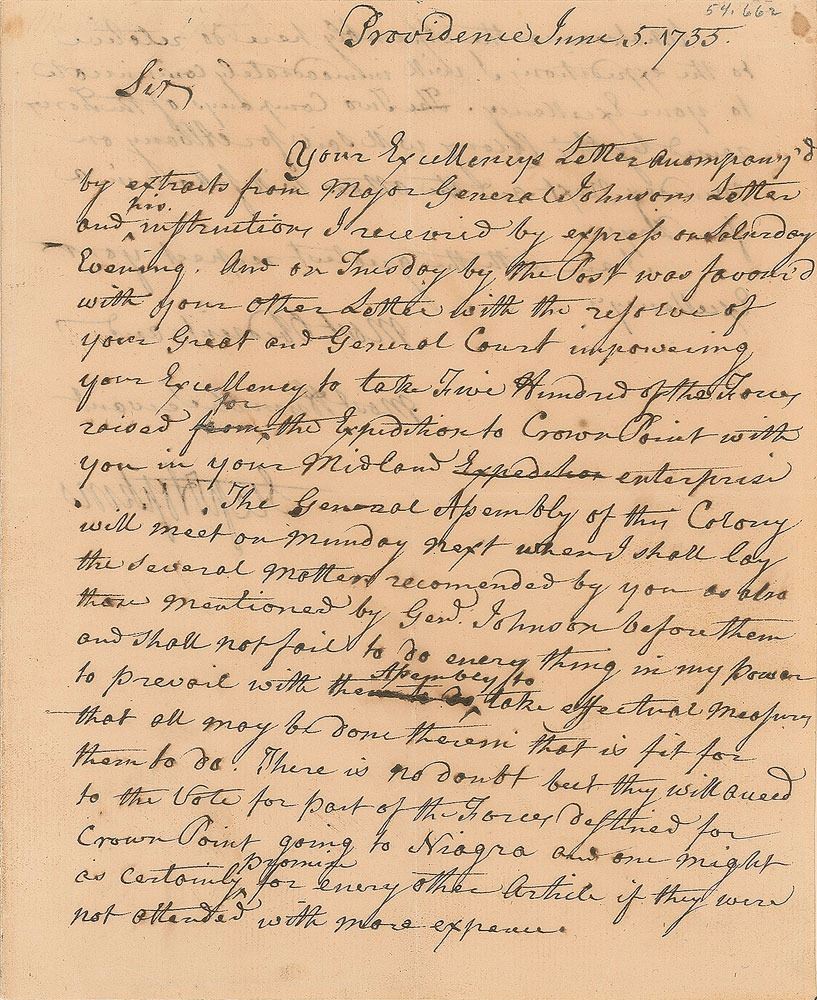 54.662
Providence June 5. 1755.
Sir
Your Excellencys Letter accompany'd
by extracts from Major General Johnsons Letter
his
and instructions I received by express on Saturday
Evening. And on Tuesday by the Post was favour'd
with your other Letter with the resolve of
your Great and General Court impowering
your Excellency to take Five Hundred of the Forces
for
raised from the Expedition to Crown Point with
you in your Midland Expedition enterprise
The General Assembly of this Colony
will meet on Munday next when I shall lay
the several Matters recomended by you as also
those mentioned by Genl. Johnson before them
and shall not fail to do every thing in my power
Assembly to
to prevail with take effectual Measures
that all may be done therein that is fit for
them to do. There is no doubt but they will acceed
to the Vote for part of the Forces destined for
Crown Point going to Niagra and one might
promise
as certainly for every other Article if they were
not attended with more expence.